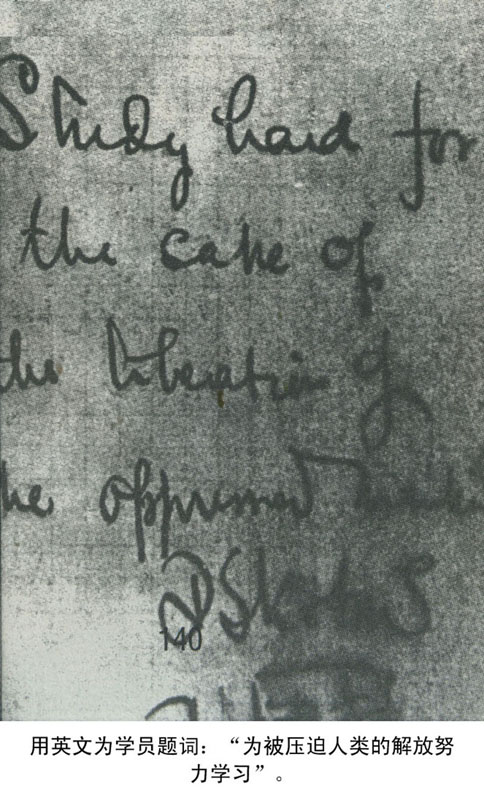 Study hard for
the sake of
the liberation of
he oppressed
DSKotnis
140
用英文为学员题词：“为被压迫人类的解放努
力学习”。